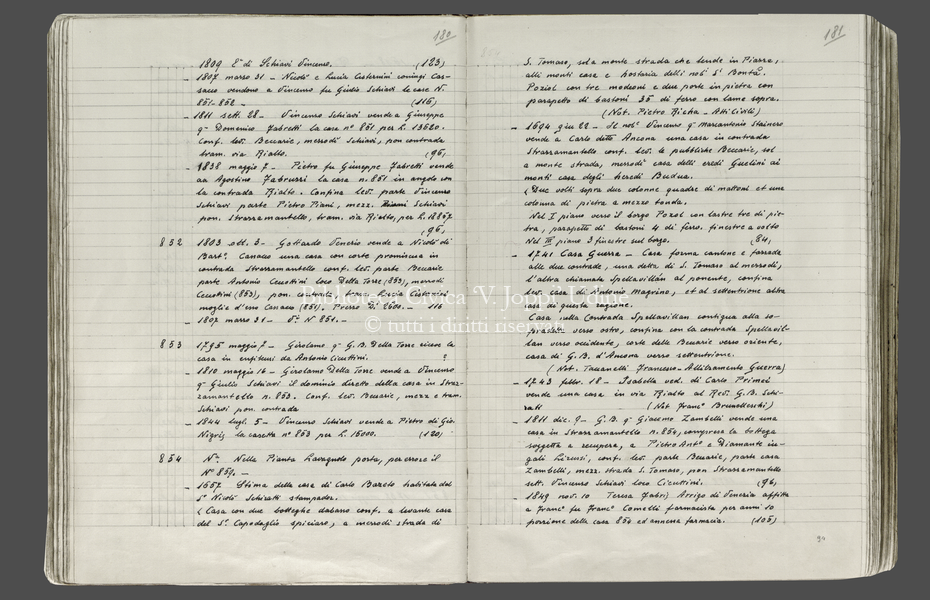 180
1809 Er. di Schiavi Vincenzo. (123)
- 1807 marzo 31 - Nicolò e Lucia Custernini coniugi Cas-
sacco vendono a Vincenzo fu Giulio Schiavi le case N.
851-852 - (116)
- 1811 sett. 28 - Vincenzo Schiavi vende a Giuseppe
qm Domenico Fabretti la casa n° 851 per L. 13620.
Conf. lev. Beccarie, merodì Schiavi, pon contrada
tram. via Rialto. (96)
- 1838 maggio 7 - Pietro fu Giuseppe Fabretti vende
ad Agostino Fabruzzi la casa n. 851 in angolo con
la contrada Rialto. Confina lev. parte Vincenzo
Schiavi parte Pietro Piani, mezz. Schiavi
pon. Strazzamantello, tram. via Rialto, per L. 18867
(96)
852 1803 ott. 3 - Gottardo Venerio vende a Nicolò di
Bart° Canacco una casa con corte promiscua in
contrada Strazzamantello conf. lev. parte Beccarie
parte Antonio Cicuttini loco Della Torre (853), merodì
Cicuttini (853), pon. strada, tram. Lucia
moglie d'esso Canacco (851). Prezzo D. 2600. - 116
- 1807 marzo 31 - V. N° 851. -
853 1795 maggio 7 - Girolamo q G.B. Della Torre
casa in enfiteusi da Antonio Cicuttini. ?
- 1810 maggio 16 - Girolamo Della Torre vende a Vincenzo
q Giulio Schiavi il dominio diretto della casa in Straz-
zamantello n. 853. Conf. lev. Beccarie, mezz e tram.
Schiavi pon contrada
- 1844 lugl. 5 - Vincenzo Schiavi vende a Pietro di Gio.
Nigris la casetta n° 853 per L. 15000. (120)
854 Na. Nella Pianta Lavagnolo porta, per errore il
N° 859. -
- 1657 Stima della casa di Carlo Bareto habitata del
Sr Nicolò Schiratti stampador.
(Casa con due botteghe dabasso conf. a levante casa
del Sr Capodaglio spiciaro, a merodì strada di
181
S. Tomaso, sol a monte strada che tende in Piazza,
alli monti case e hostaria delli nobi Si Bontà.
Pozol con tre modeoni e due porte in pietra con
parapetto di bastoni 35 di ferro con lame sopra.
(Not. Pietro Richa - Atti Civili)
- 1694 giu 22 - Il nob. Vincenzo qm Marcantonio Stainero
vende a Carlo detto Ancona una casa in contrada
Strazzamantello conf. lev. le pubbliche Beccarie, sol
a monte strada, merodì casa delli eredi ai
monti case degli heredi Budua.
(Due volti sopra due colonne quadre di mattoni et una
colonna di pietra a mezzo tonda.
Nel I piano verso il borgo Pozol con lastre tre di pie-
tra, parapetti di bastoni 4 di ferro. finestre a volto
Nel III piano 3 finestre sul borgo. (84)
- 1741 Casa Guerra - Case forma cantone e farrada
alle due contrade, una detta di S. Tomaso al merzodì,
l'altra chiamata Spellavillan al ponente, confina
lev. casa di Antonio Magrino, et al settentrione altra
casa di questa ragione.
Casa nella Contrada Spellavillan contigua alla so-
prad.ta verso ostro, confina con la contrada Spellavil-
lan verso occidente, corte delle Beccarie verso oriente,
casa di G.B. d'Ancona verso settentrione.
(Not. Tavanelli Francesco - Allibramento Guerra)
- 1743 febbr. 18 - Isabella ved. di Carlo Primei
vende una casa in via Rialto al Red. G.B. Schi-
rati (Not Franc° Brunelleschi)
- 1811 dic. 9 - G.B. q Giacomo Zambelli vende una
casa in Strazzamantello n. 854, compresa la bottega
soggetta a recupera, a Pietro Ant° e Diamante iu-
gali Lizussi, conf. lev. parte Beccarie, parte casa
Zambelli, mezz. strada S. Tomaso, pon Strazzamantello
sett. Vincenzo Schiavi loco Cicuttini. (96)
- 1849 nov. 10 Teresa Fabris Arrigo di Venezia affitta
a Franc° fu Franc° Comelli farmacista per anni 10
porzione della casa 854 ed annessa farmacia. (105)
94
Biblioteca Civica "V. Joppi" Udine
© tutti i diritti riservati